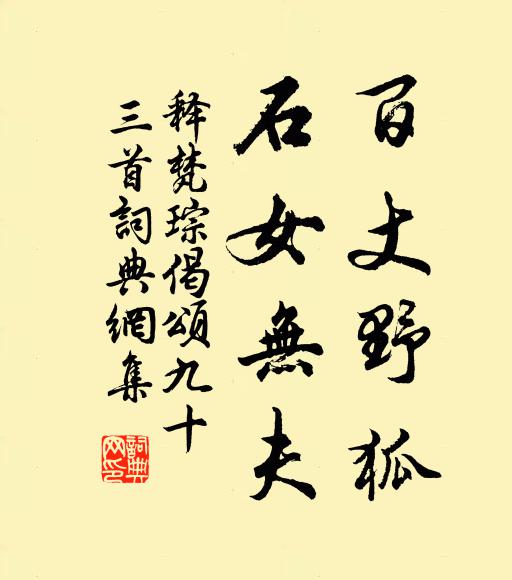 百丈野狐
石女無夫
释梵琮偈頌九十
三首詞典網集
詞典网印